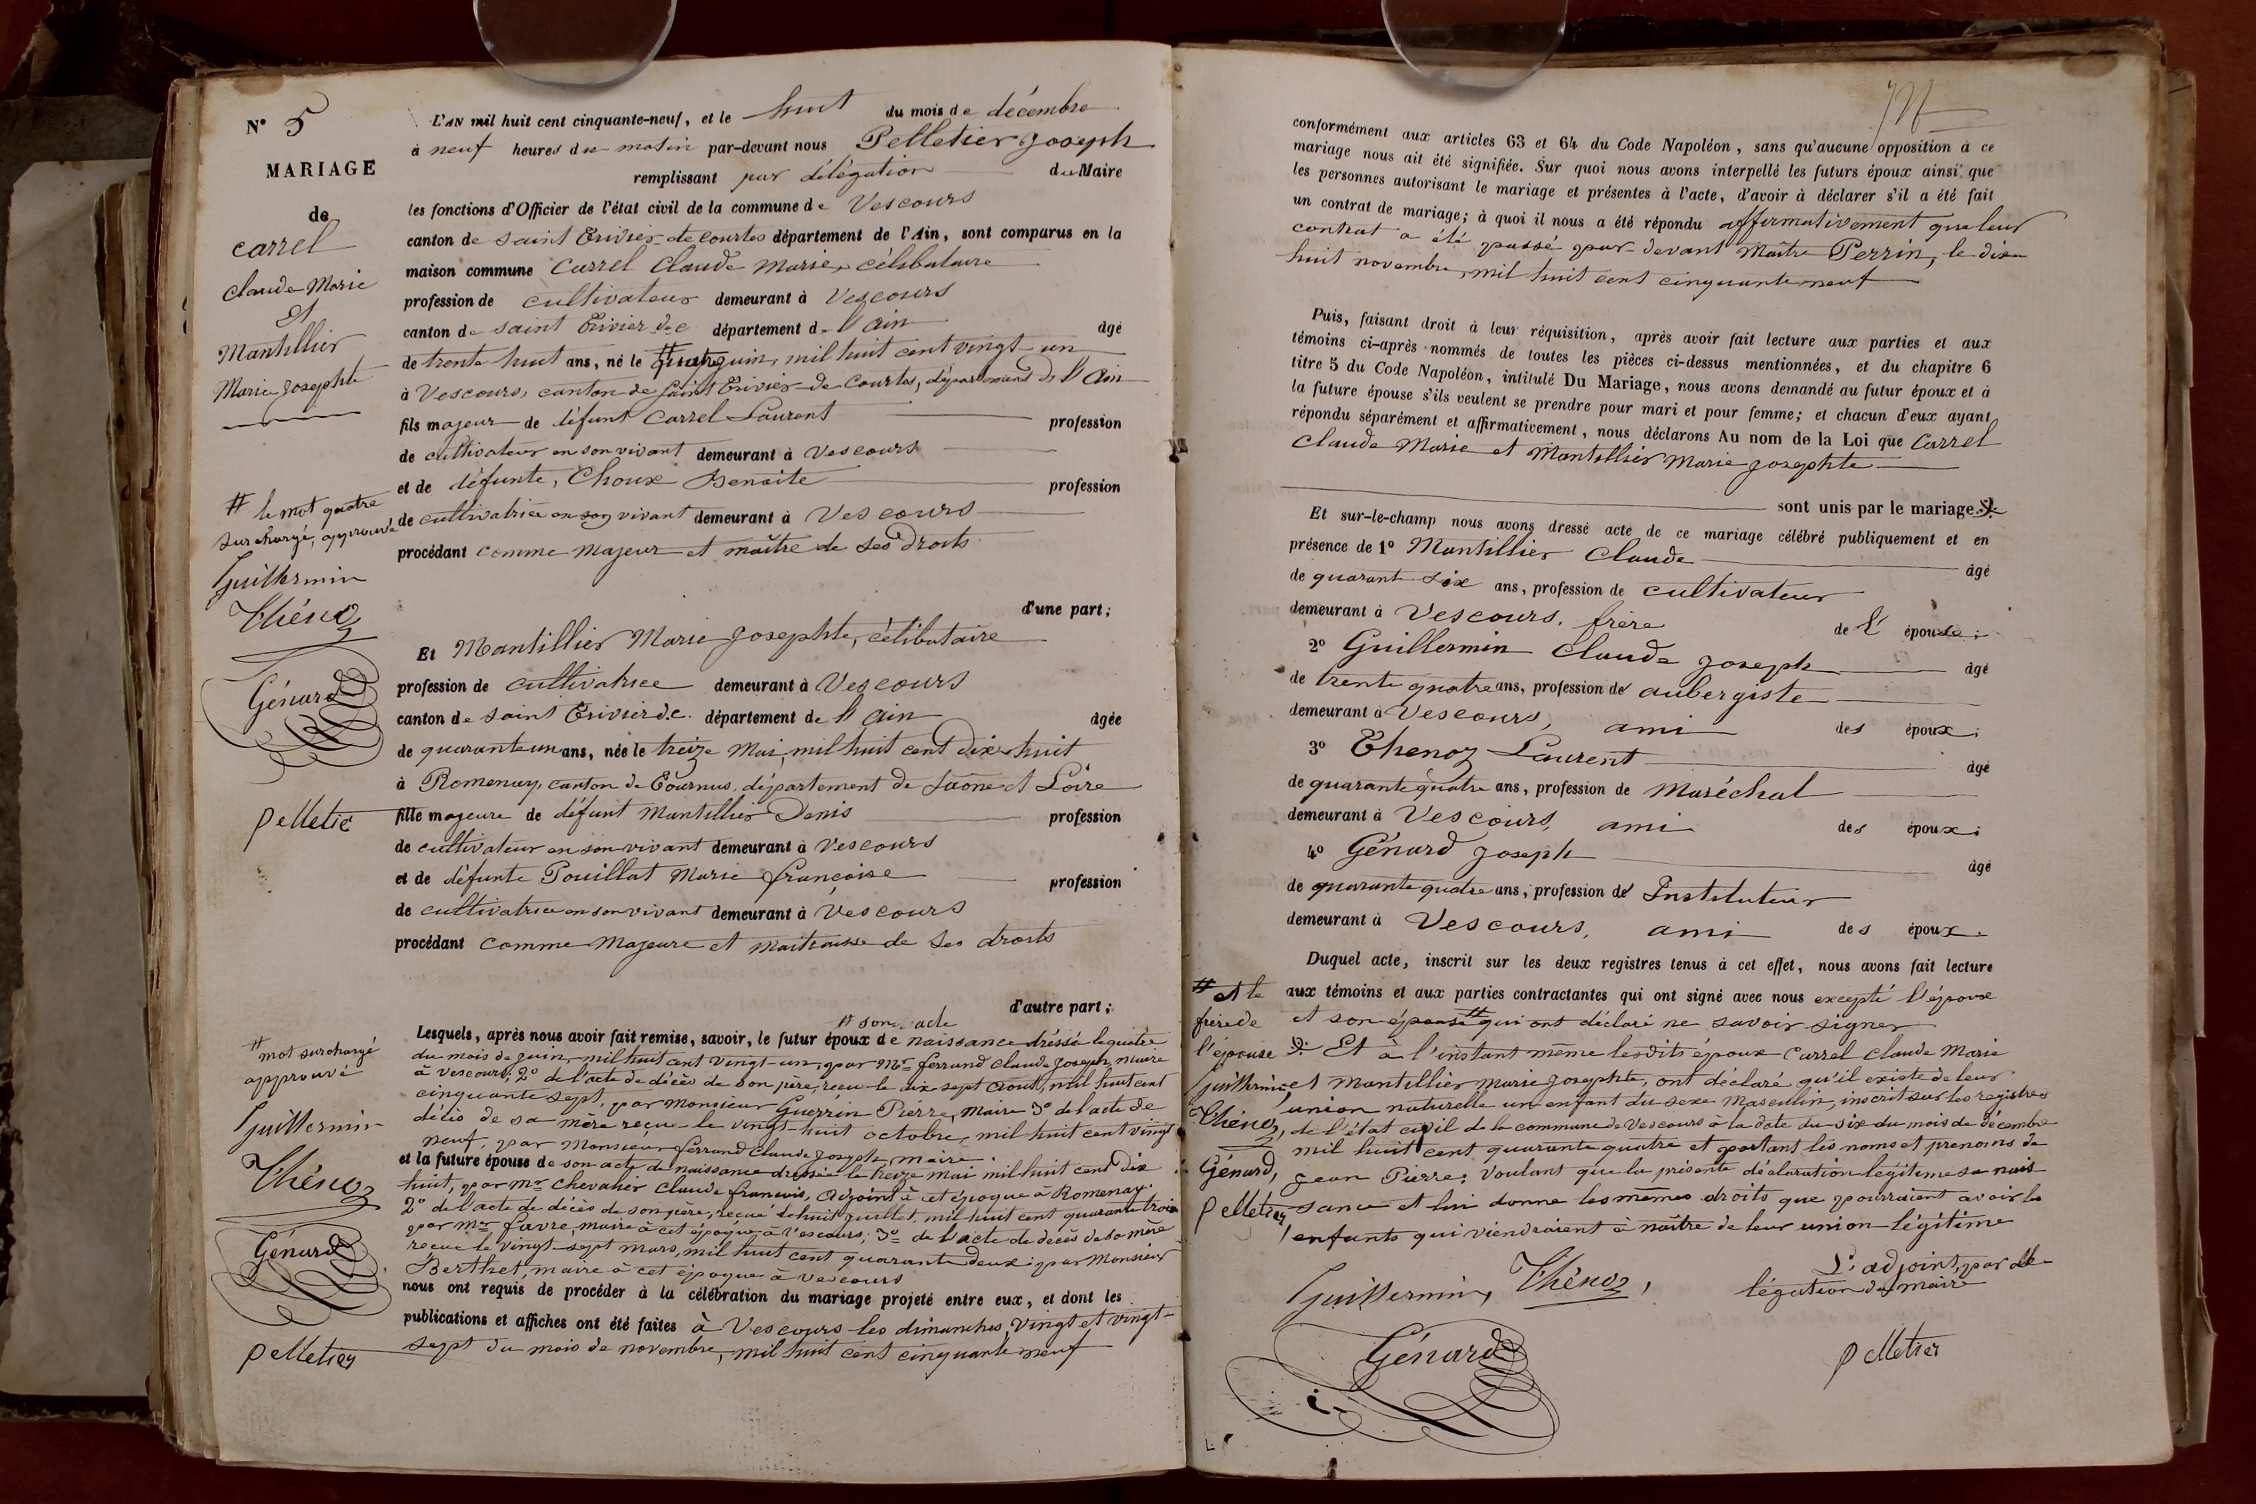 N° 5
MARIAGE
de
Carrel
Claude Marie
Et
Mantillier
Marie Josephte
# le mot quatre
surchargé, approuvé
Guillermin
Thénoz
Génard
Pelletier
# mot surchargé
approuvé
Guillermin
Thénoz
Génard
Pelletier
L'AN mil huit cent cinquante-neuf, et le huit du mois de décembre
à neuf heures du matin par-devant nous Pelletier Joseph
remplissant par délégation du Maire
les fonctions d'Officier de l'état civil de la commune de Vescours
canton de Saint Trivier de Courtes département de l'Ain, sont comparus en la
maison commune Carrel Claude Marie, célibataire
profession de cultivateur demeurant à Vescours
canton de Saint Trivier de C département de l'Ain âgé
de trente huit ans, né le # quatre juin, mil huit cent vingt-un
à Vescours, canton de Saint Trivier de Courtes, département de l'Ain
fils majeur de défunt Carrel Laurent profession
de cultivateur en son vivant demeurant à Vescours
et de défunte, Choux Benoite profession
de cultivatrice en son vivant demeurant à Vescours
procédant comme Majeur et maître de ses droits
d'une part;
Et Mantillier Marie Josephte, célibataire
profession de cultivatrice demeurant à Vescours
canton de Saint Trivier de C. département de l'Ain âgée
de quarante un ans, née le treize Mai, mil huit cent dix-huit
à Romenay, canton de Tournus, département de Saône et Loire
fille majeure de défunt Mantillier Denis profession
de cultivateur en son vivant demeurant à Vescours
et de défunte Pouillat Marie françoise profession
de cultivatrice en son vivant demeurant à Vescours
procédant comme Majeure et maitrausse de ses droits
d'autre part;
# son acte
Lesquels, après nous avoir fait remise, savoir, le futur époux de naissance dressé le quatre
du mois de juin, mil huit cent vingt-un, par Mr ferrand Claude Joseph, maire
à Vescours; 2° de l'acte de décès de son père, reçu le dix-sept Août, mil huit cent
cinquante sept, par Monsieur Guerrin Pierre, Maire 3° de l'acte de
décès de sa mère reçu le vingt-huit octobre, mil huit cent vingt
neuf, par Monsieur ferrand Claude Joseph, maire.
et la future épouse de son acte de naissance dressé le treize mai mil huit cent dix
huit, par Mr Chevalier Claude françois, Adjoint à cet époque à Romenay.
2° de l'acte de décès de son père, reçue le huit juillet, mil huit cent quarante trois
par Mr favre, maire à cet époque, à Vescours; 3° de l'acte de decès de sa mère
reçue le vingt-sept mars, mil huit cent quarante deux; par Monsieur
Berthet, maire à cet époque à Vescours
nous ont requis de procéder à la célébration du mariage projeté entre eux, et dont les
publications et affiches ont été faites à Vescours les dimanches, vingt et vingt-
sept du mois de novembre, mil huit cent cinquante neuf
conformément aux articles 63 et 64 du Code Napoléon, sans qu'aucune opposition à ce
mariage nous ait été signifiée. Sur quoi nous avons interpellé les futurs époux ainsi que
les personnes autorisant le mariage et présentes à l'acte, d'avoir à déclarer s'il a été fait
un contrat de mariage; à quoi il nous a été répondu affirmativement que leur
contrat a été passé par-devant Maître Perrin, le dix-
huit novembre, mil huit cent cinquante neuf
Puis, faisant droit à leur réquisition, après avoir fait lecture aux parties et aux
témoins ci-après nommés de toutes les pièces ci-dessus mentionnées, et du chapitre 6
titre 5 du Code Napoléon, intitulé Du Mariage, nous avons demandé au futur époux et à
la future épouse s'ils veulent se prendre pour mari et pour femme; et chacun d'eux ayant
répondu séparément et affirmativement, nous déclarons Au nom de la Loi que Carrel
Claude Marie et Mantillier Marie Josephte
sont unis par le mariage.
Et sur-le-champ nous avons dressé acte de ce mariage célébré publiquement et en
présence de 1° Mantillier Claude âgé
de quarant-six ans, profession de cultivateur
demeurant à Vescours. frère de l' épouse;
2° Guillermin Claude Joseph âgé
de trente quatre ans, profession de aubergiste
demeurant à Vescours, ami des époux;
3° Thenoz Laurent âgé
de quarante quatre ans, profession de Maréchal
demeurant à Vescours, ami des époux;
4° Génard Joseph âgé
de quarante quatre ans, profession de Instituteur
demeurant à Vescours, ami des époux.
Duquel acte, inscrit sur les deux registres tenus à cet effet, nous avons fait lecture
aux témoins et aux parties contractantes qui ont signé avec nous excepté l'époux
et son épouse # qui ont déclaré ne savoir signer
Et à l'instant même lesdits époux Carrel Claude Marie
et Mantillier Marie Josephte, ont déclaré qu'il existe de leur
union naturelle un enfant du sexe Masculin, inscrit sur les registres
de l'état civil de la commune de Vescours à la date du six du mois de décembre
mil huit cent quarante quatre et portant les noms et prenoms de
Jean Pierre; Voulant que la présente déclaration légitime sa nais-
sance et lui donne les mêmes droits que pourraient avoir les
enfants qui viendraient à naître de leur union légitime
# et le
frère de
l'épouse
Guillermin,
Thénoz,
Génard,
Pelletier,
L'adjoint, par dé-
légation du maire
Guillermin, Thénoz,
Génard
Pelletier